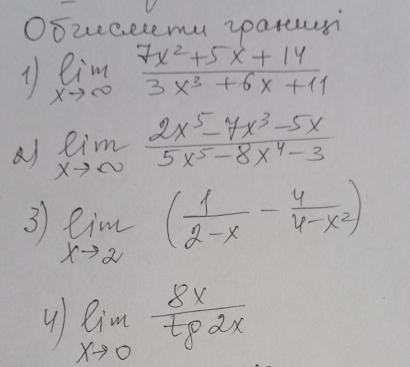 Обчислити границі
1) lim x→∞ (7x² + 5x + 14)/(3x³ + 6x + 11)
2) lim x→∞ (2x⁵ - 7x³ - 5x)/(5x⁵ - 8x⁴ - 3)
3) lim x→2 (1/(2-x) - 4/(4-x²))
4) lim x→0 8x/tg 2x